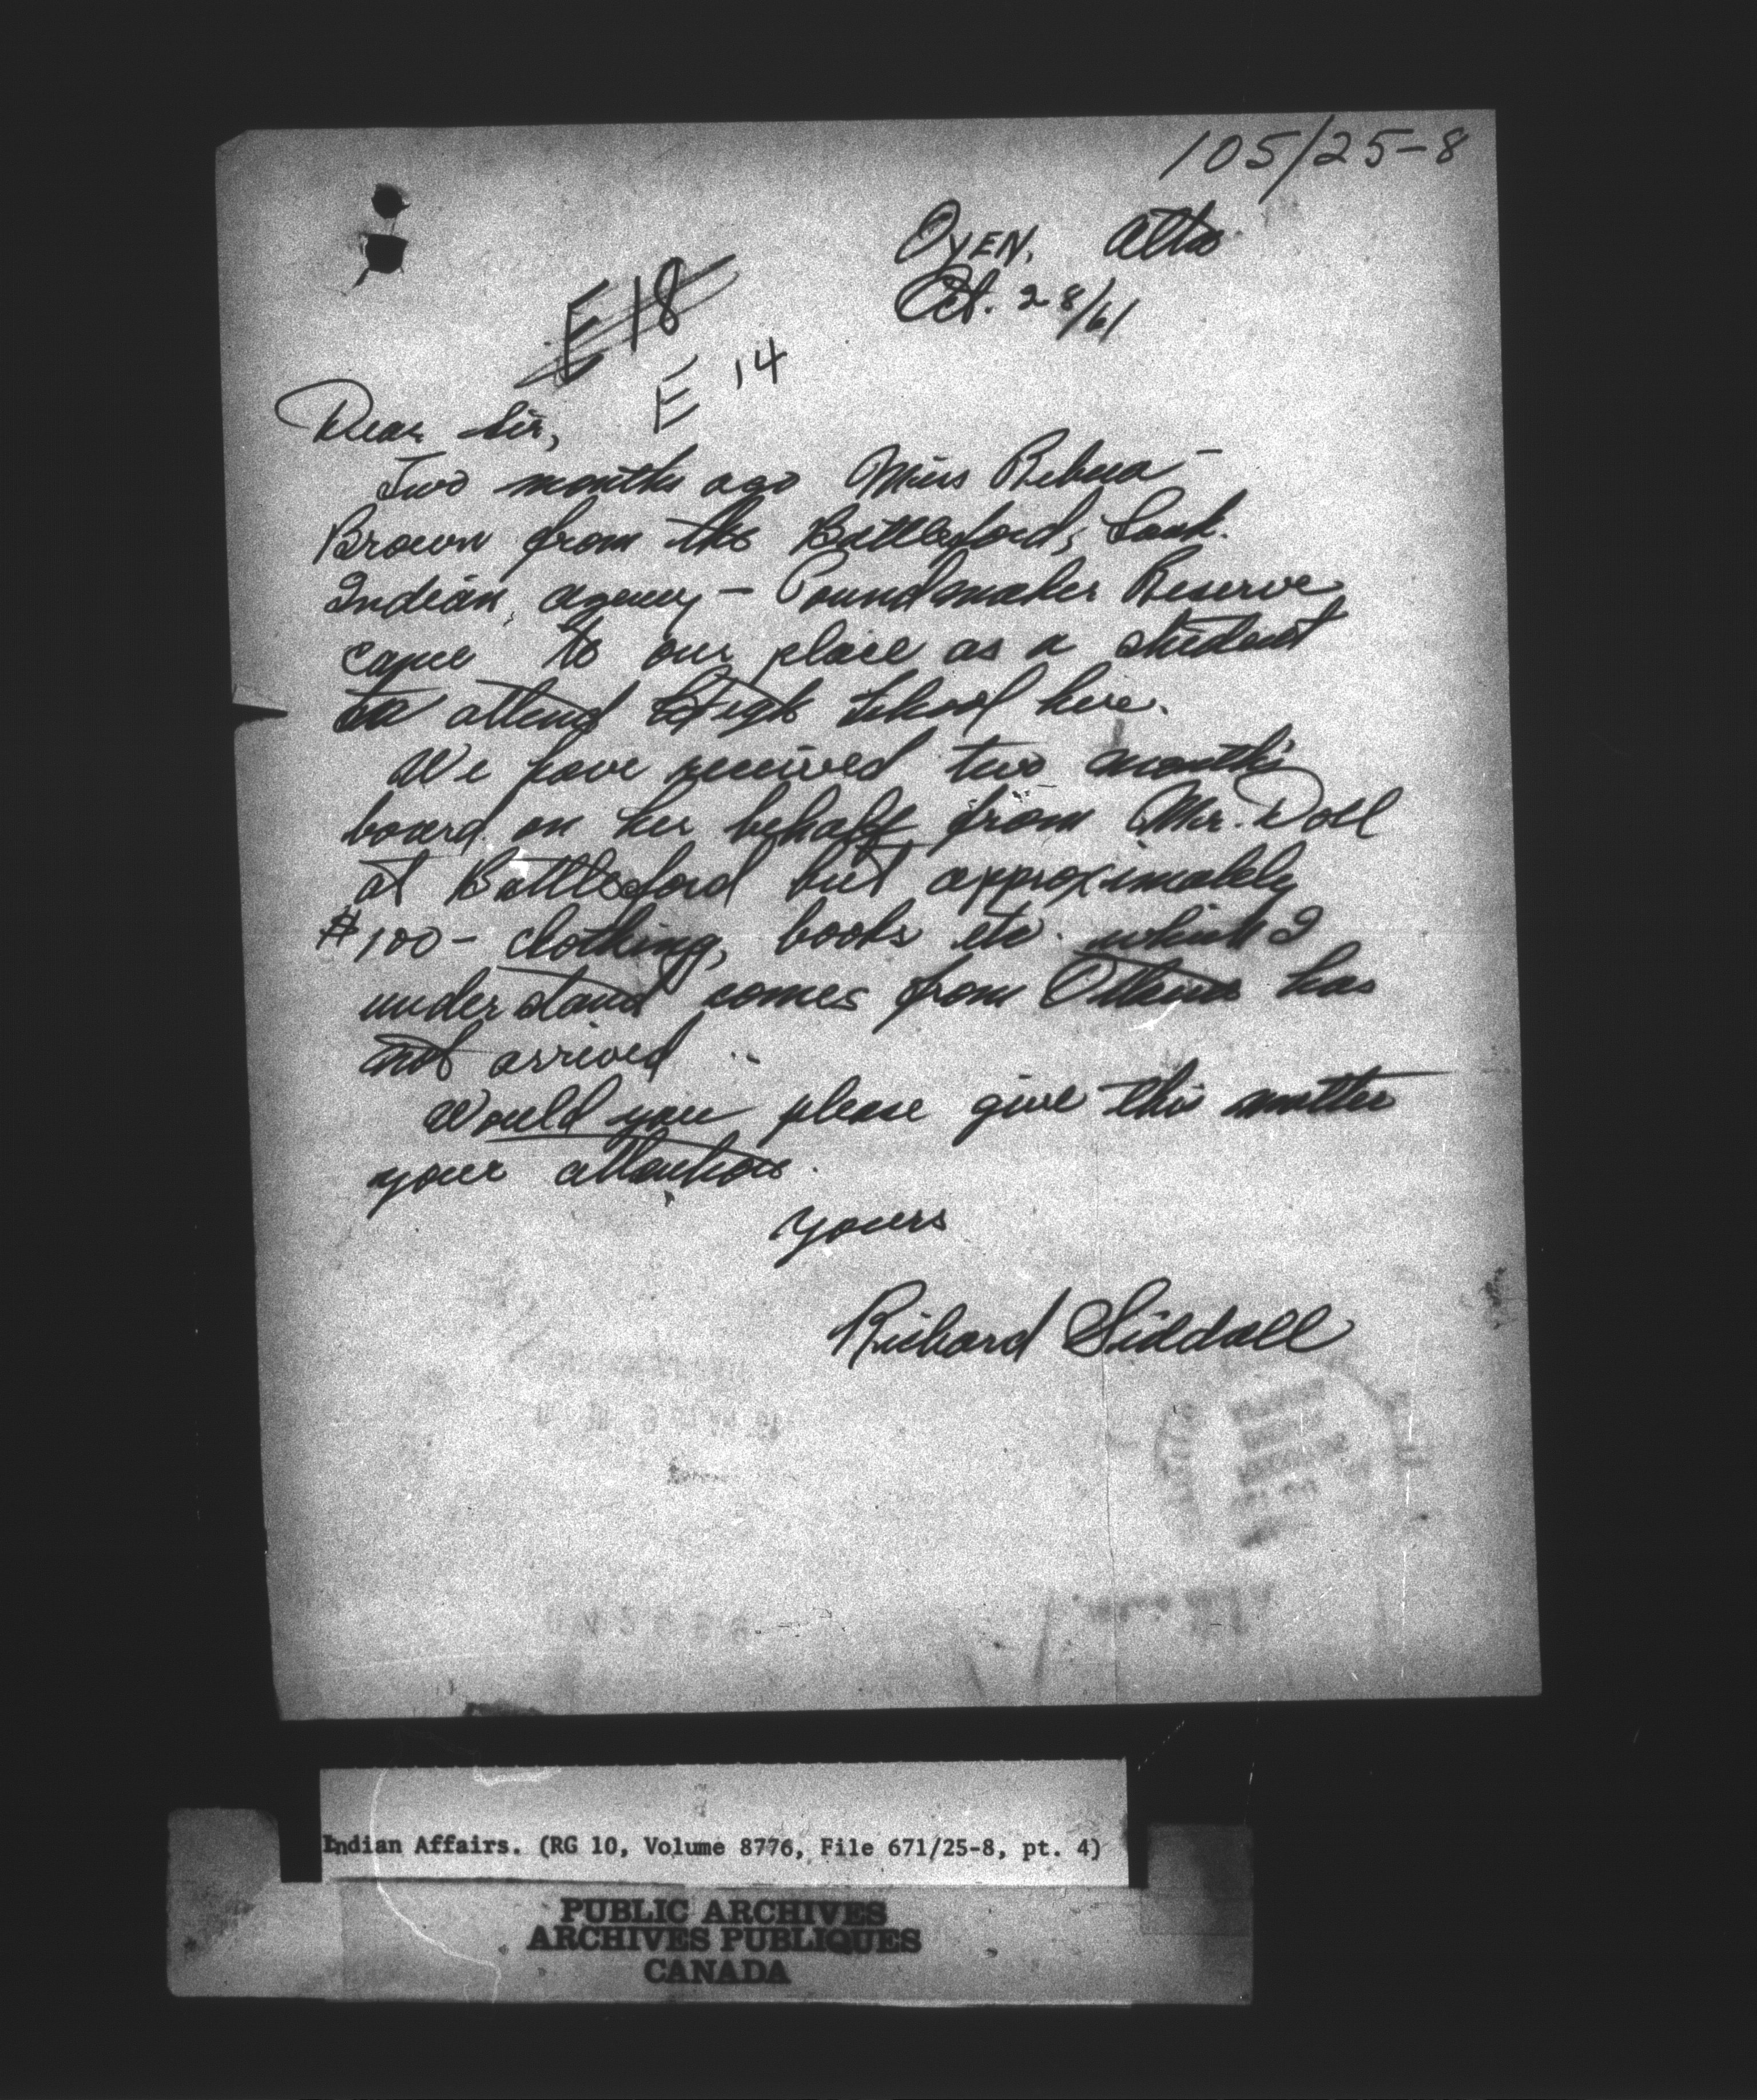 105/25-8
OYEN. Alta
Oct. 28/61
E18
E 14
Dear Sir,
Two months ago Miss Rebecca -
Brown from the Battleford, Sask.
Indian agency - Poundmaker Reserve
came to our place as a student
to attend High School here.
We have received two month's
board on her behalf from Mr. Doll
at Battleford but approximately
$100- clothing, books etc. which I
understand comes from Ottawa has
not arrived
Would you please give this matter
your attention.
Yours
Richard Siddall
Indian Affairs. (RG 10, Volume 8776, File 671/25-8, pt. 4)
PUBLIC ARCHIVES
ARCHIVES PUBLIQUES
CANADA